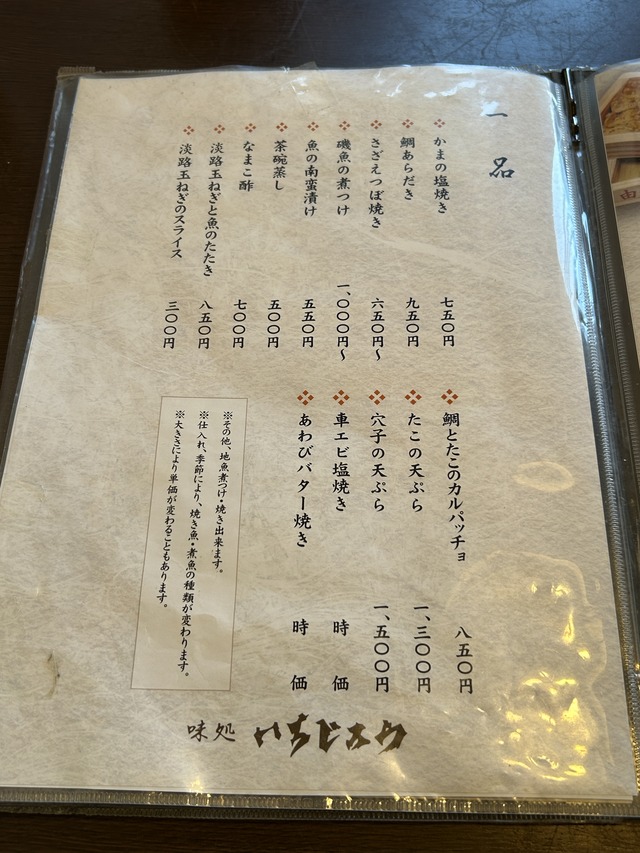 一品
かまの塩焼き 七五〇円
鯛あらだき 九五〇円
さざえつぼ焼き 六五〇円～
磯魚の煮つけ 一、〇〇〇円～
魚の南蛮漬け 五五〇円
茶碗蒸し 五〇〇円
なまこ酢 七〇〇円
淡路玉ねぎと魚のたたき 八五〇円
淡路玉ねぎのスライス 三〇〇円
鯛とたこのカルパッチョ 八五〇円
たこの天ぷら 一、三〇〇円
穴子の天ぷら 一、五〇〇円
車エビ塩焼き 時価
あわびバター焼き 時価
※その他、地魚煮つけ・焼き出来ます。
※仕入れ、季節により、焼き魚・煮魚の種類が変わります。
※大きさにより単価が変わることもあります。
味処